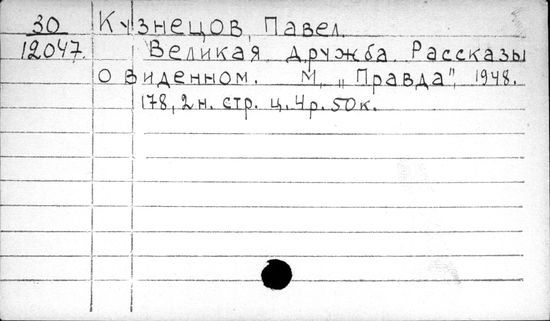 30 Кузнецов, Павел.
12047. Великая дружба. Рассказы
о виденном. М, „Правда", 1948.
178, 2 н. стр. ц. 4р. 50 к.